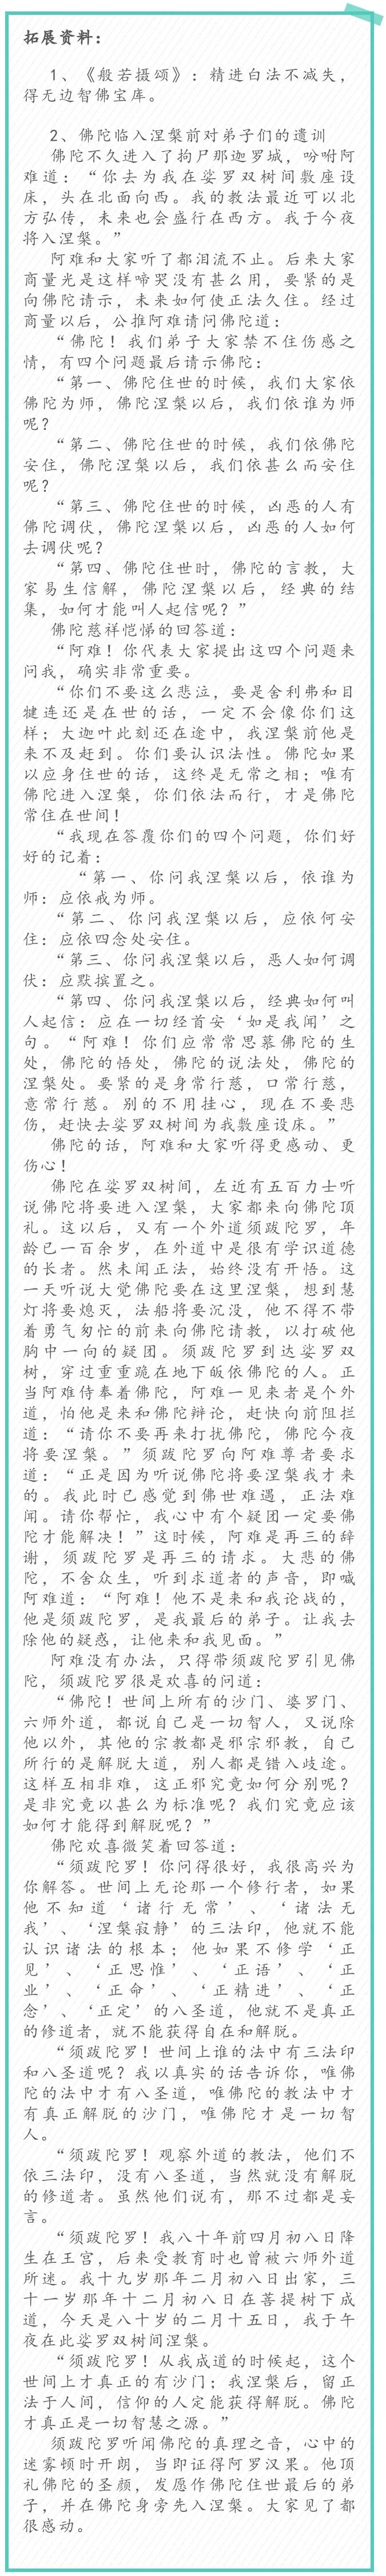 拓展资料：
1、《般若摄颂》：精进白法不减失，
得无边智佛宝库。
2、佛陀临入涅槃前对弟子们的遗训
佛陀不久进入了拘尸那迦罗城，吩咐阿
难道：“你去为我在娑罗双树间敷座设
床，头在北面向西。我的教法最近可以北
方弘传，未来也会盛行在西方。我于今夜
将入涅槃。”
阿难和大家听了都泪流不止。后来大家
商量光是这样啼哭没有甚么用，要紧的是
向佛陀请示，未来如何使正法久住。经过
商量以后，公推阿难请问佛陀道：
“佛陀！我们弟子大家禁不住伤感之
情，有四个问题最后请示佛陀：
“第一、佛陀住世的时候，我们大家依
佛陀为师，佛陀涅槃以后，我们依谁为师
呢？
“第二、佛陀住世的时候，我们依佛陀
安住，佛陀涅槃以后，我们依甚么而安住
呢？
“第三、佛陀住世的时候，凶恶的人有
佛陀调伏，佛陀涅槃以后，凶恶的人如何
去调伏呢？
“第四、佛陀住世时，佛陀的言教，大
家易生信解，佛陀涅槃以后，经典的结
集，如何才能叫人起信呢？”
佛陀慈祥恺悌的回答道：
“阿难！你代表大家提出这四个问题来
问我，确实非常重要。
“你们不要这么悲泣，要是舍利弗和目
犍连还是在世的话，一定不会像你们这
样；大迦叶此刻还在途中，我涅槃前他是
来不及赶到。你们要认识法性。佛陀如果
以应身住世的话，这终是无常之相；唯有
佛陀进入涅槃，你们依法而行，才是佛陀
常住在世间！
“我现在答覆你们的四个问题，你们好
好的记着：
“第一、你问我涅槃以后，依谁为
师：应依戒为师。
“第二、你问我涅槃以后，应依何安
住：应依四念处安住。
“第三、你问我涅槃以后，恶人如何调
伏：应默摈置之。
“第四、你问我涅槃以后，经典如何叫
人起信：应在一切经首安‘如是我闻’之
句。“阿难！你们应常常思慕佛陀的生
处，佛陀的悟处，佛陀的说法处，佛陀的
涅槃处。要紧的是身常行慈，口常行慈，
意常行慈。别的不用挂心，现在不要悲
伤，赶快去娑罗双树间为我敷座设床。”
佛陀的话，阿难和大家听得更感动、更
伤心！
佛陀在娑罗双树间，左近有五百力士听
说佛陀将要进入涅槃，大家都来向佛陀顶
礼。这以后，又有一个外道须跋陀罗，年
龄已一百余岁，在外道中是很有学识道德
的长者。然未闻正法，始终没有开悟。这
一天听说大觉佛陀要在这里涅槃，想到慧
灯将要熄灭，法船将要沉没，他不得不带
着勇气匆忙的前来向佛陀请教，以打破他
胸中一向的疑团。须跋陀罗到达娑罗双
树，穿过重重跪在地下皈依佛陀的人。正
当阿难侍奉着佛陀，阿难一见来者是个外
道，怕他是来和佛陀辩论，赶快向前阻拦
道：“请你不要再来打扰佛陀，佛陀今夜
将要涅槃。”须跋陀罗向阿难尊者要求
道：“正是因为听说佛陀将要涅槃我才来
的。我此时已感觉到佛世难遇，正法难
闻。请你帮忙，我心中有个疑团一定要佛
陀才能解决！”这时候，阿难是再三的辞
谢，须跋陀罗是再三的请求。大悲的佛
陀，不舍众生，听到求道者的声音，即喊
阿难道：“阿难！他不是来和我论战的，
他是须跋陀罗，是我最后的弟子。让我去
除他的疑惑，让他来和我见面。”
阿难没有办法，只得带须跋陀罗引见佛
陀，须跋陀罗很是欢喜的问道：
“佛陀！世间上所有的沙门、婆罗门、
六师外道，都说自己是一切智人，又说除
他以外，其他的宗教都是邪宗邪教，自己
所行的是解脱大道，别人都是错入歧途。
这样互相非难，这正邪究竟如何分别呢？
是非究竟以甚么为标准呢？我们究竟应该
如何才能得到解脱呢？”
佛陀欢喜微笑着回答道：
“须跋陀罗！你问得很好，我很高兴为
你解答。世间上无论那一个修行者，如果
他不知道‘诸行无常’、‘诸法无
我’、‘涅槃寂静’的三法印，他就不能
认识诸法的根本；他如果不修学‘正
见’、‘正思惟’、‘正语’、‘正
业’、‘正命’、‘正精进’、‘正
念’、‘正定’的八圣道，他就不是真正
的修道者，就不能获得自在和解脱。
“须跋陀罗！世间上谁的法中有三法印
和八圣道呢？我以真实的话告诉你，唯佛
陀的法中才有八圣道，唯佛陀的教法中才
有真正解脱的沙门，唯佛陀才是一切智
人。
“须跋陀罗！观察外道的教法，他们不
依三法印，没有八圣道，当然就没有解脱
的修道者。虽然他们说有，那不过都是妄
言。
“须跋陀罗！我八十年前四月初八日降
生在王宫，后来受教育时也曾被六师外道
所迷。我十九岁那年二月初八日出家，三
十一岁那年十二月初八日在菩提树下成
道，今天是八十岁的二月十五日，我于午
夜在此娑罗双树间涅槃。
“须跋陀罗！从我成道的时候起，这个
世间上才真正的有沙门；我涅槃后，留正
法于人间，信仰的人定能获得解脱。佛陀
才真正是一切智慧之源。”
须跋陀罗听闻佛陀的真理之音，心中的
迷雾顿时开朗，当即证得阿罗汉果。他顶
礼佛陀的圣颜，发愿作佛陀住世最后的弟
子，并在佛陀身旁先入涅槃。大家见了都
很感动。